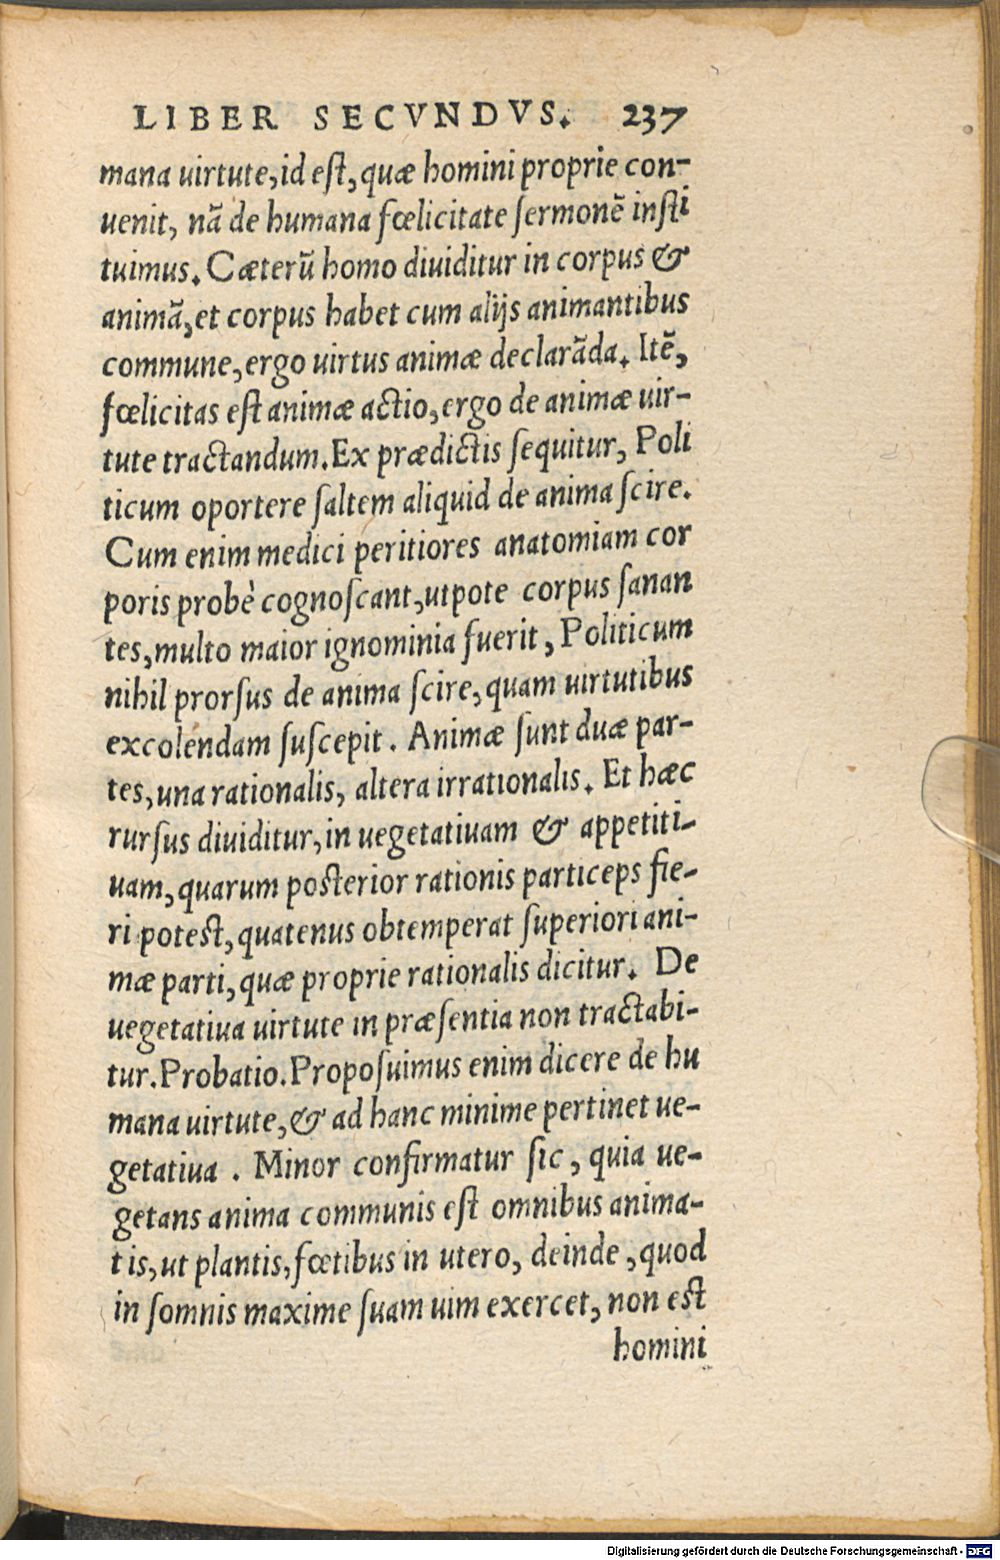 LIBER SECVNDVS. 237
mana uirtute, id est, quæ homini proprie con-
uenit, nã de humana fœlicitate sermonẽ insti
tuimus. Cæterũ homo diuiditur in corpus &
animã, et corpus habet cum alijs animantibus
commune, ergo uirtus animæ declarãda. Itẽ,
fœlicitas est animæ actio, ergo de animæ uir-
tute tractandum. Ex prædictis sequitur, Poli
ticum oportere saltem aliquid de anima scire.
Cum enim medici peritiores anatomiam cor
poris probè cognoscant, utpote corpus sanan
tes, multo maior ignominia fuerit, Politicum
nihil prorsus de anima scire, quam uirtutibus
excolendam suscepit. Animæ sunt duæ par-
tes, una rationalis, altera irrationalis. Et hæc
rursus diuiditur, in uegetatiuam & appetiti-
uam, quarum posterior rationis particeps fie-
ri potest, quatenus obtemperat superiori ani-
mæ parti, quæ proprie rationalis dicitur. De
uegetatiua uirtute in præsentia non tractabi-
tur. Probatio. Proposuimus enim dicere de hu
mana uirtute, & ad hanc minime pertinet ue-
getatiua. Minor confirmatur sic, quia ue-
getans anima communis est omnibus anima-
tis, ut plantis, fœtibus in utero, deinde, quod
in somnis maxime suam uim exercet, non est
homini
Digitalisierung gefördert durch die Deutsche Forschungsgemeinschaft - DFG